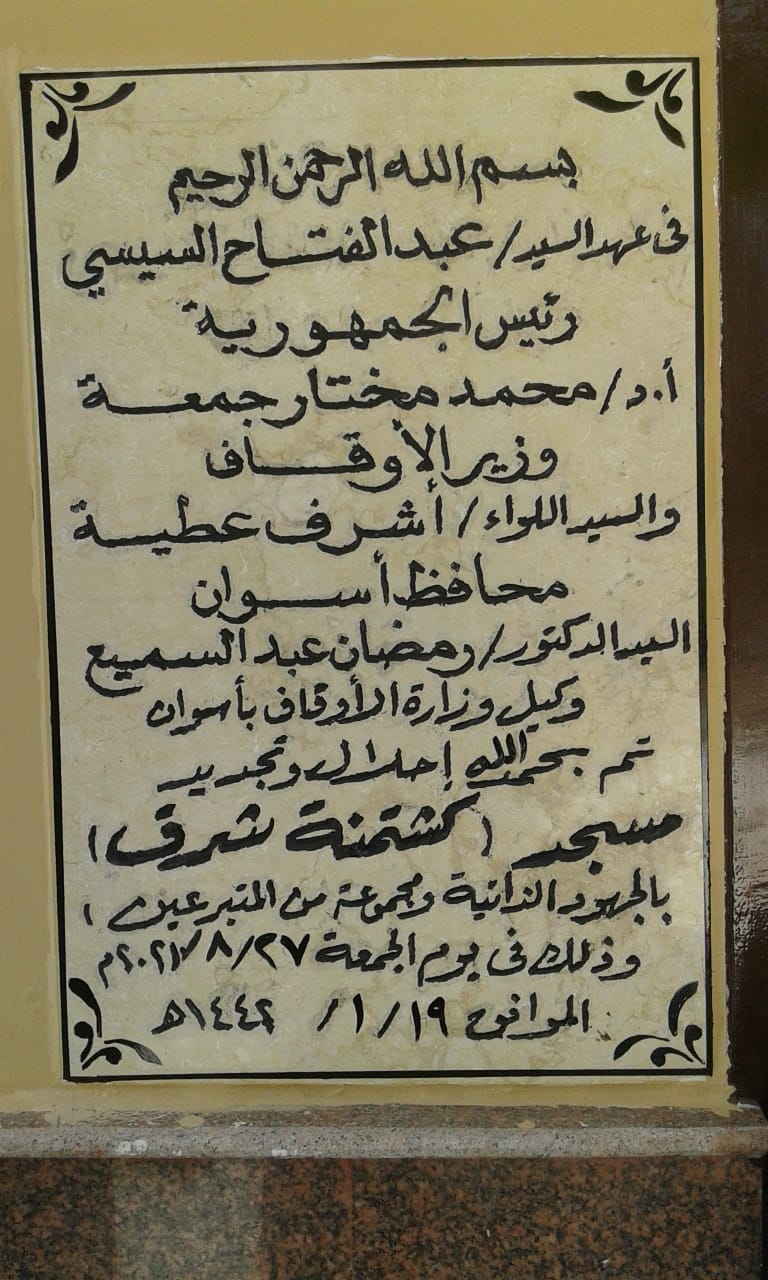 بسم الله الرحمن الرحيم
فى عهد السيد/ عبد الفتاح السيسي
رئيس الجمهورية
أ.د/ محمد مختار جمعة
وزير الأوقاف
والسيد اللواء/ أشرف عطية
محافظ أسوان
السيد الدكتور/ رمضان عبد السميع
وكيل وزارة الأوقاف بأسوان
تم بحمد الله إحلال وتجديد
مسجد (كشتمنة شرق)
بالجهود الذاتية ومجموعة من المتبرعين،
وذلك فى يوم الجمعة ٢٧/٨/٢٠٢١م
الموافق ١٩/١/ ١٤٤٢هـ